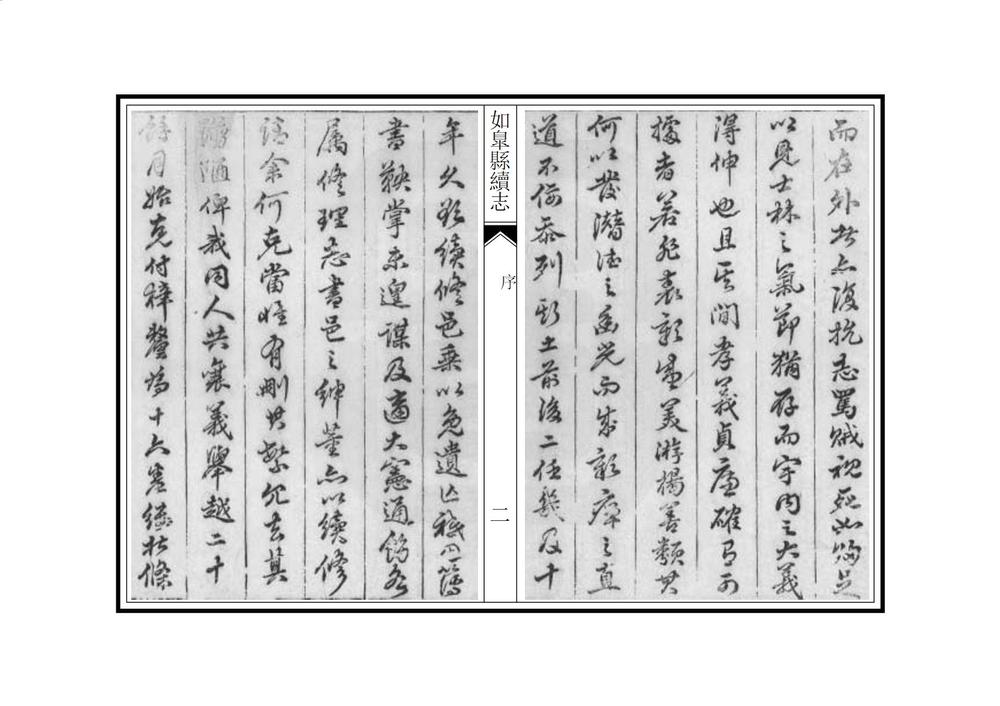 而在外者亦復抗志罵賊視死如歸足
以見士林之氣節猶存而宇內之大義
得伸也且其間孝義貞廉確有可
據者若非表彰盛美游揚善類其
何以發潛德之幽光而成彰癉之直
道不佞忝列斯土前後二任幾及十
如皐縣續志
序
二
年久欲續修邑乘以免遺亡祗因簿
書鞅掌未遑謀及適大憲通飭各
屬修理志書邑之紳董亦以續修
請余何克當惟有刪其繁冗去其
陋俾我同人共襄義舉越二十
餘月始克付梓釐為十六卷綱條